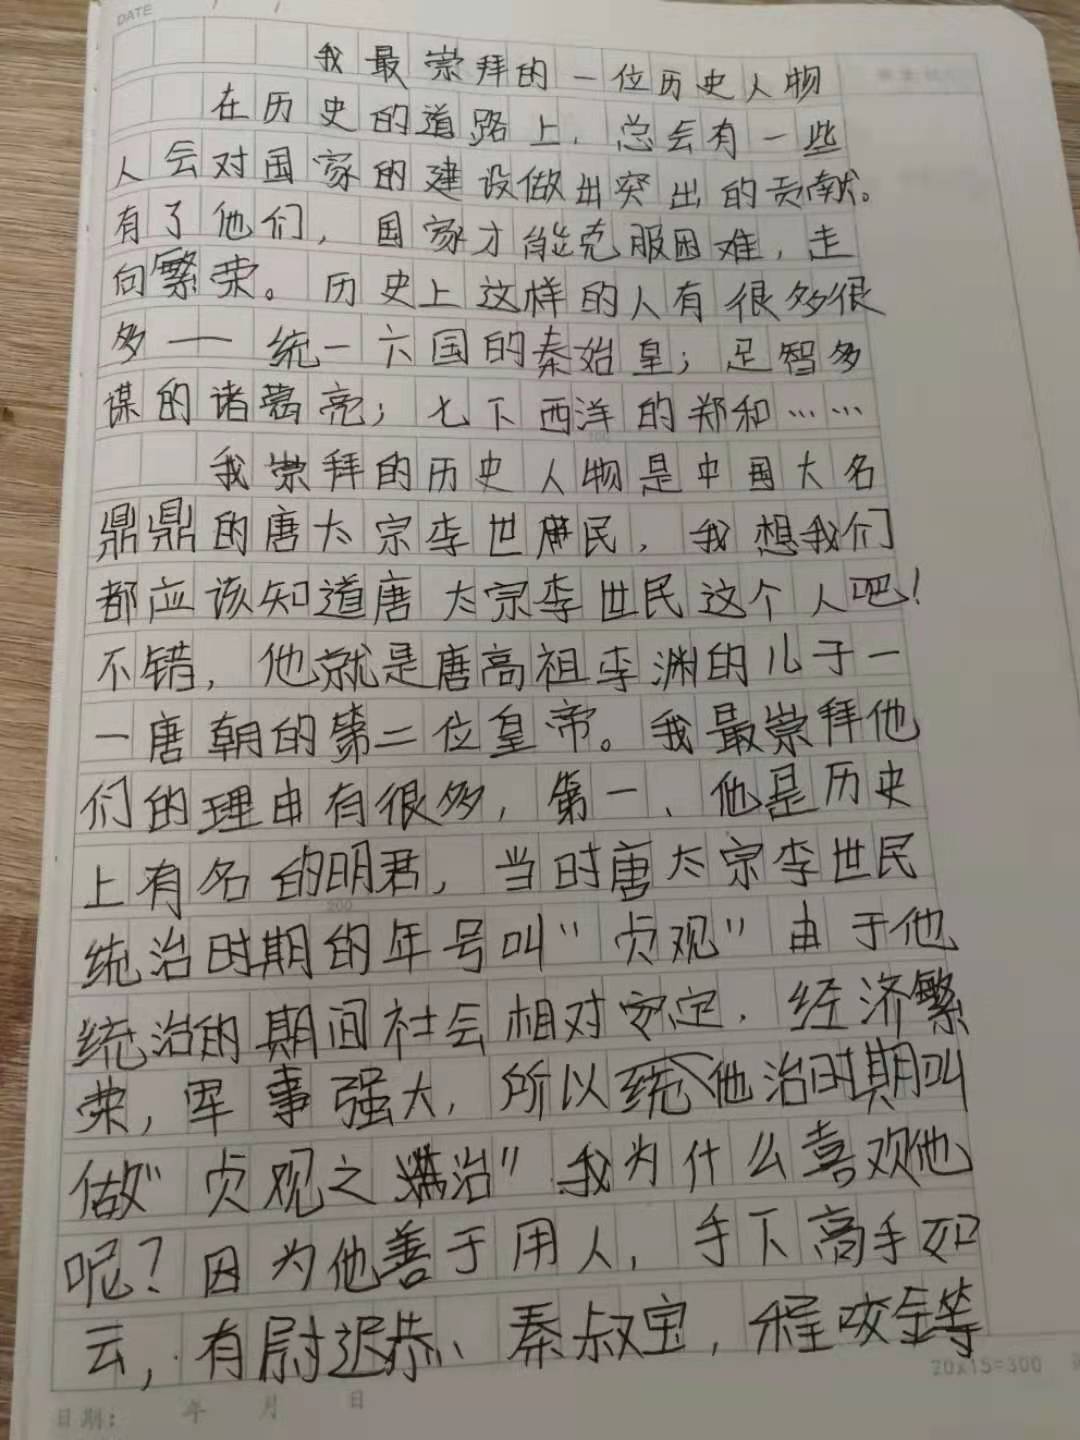 DATE
我最崇拜的一位历史人物
在历史的道路上，总会有一些
人会对国家的建设做出突出的贡献。
有了他们，国家才能克服困难，走
向繁荣。历史上这样的人有很多很
多——统一六国的秦始皇；足智多
谋的诸葛亮；七下西洋的郑和……
我崇拜的历史人物是中国大名
鼎鼎的唐太宗李世民，我想我们
都应该知道唐太宗李世民这个人吧！
不错，他就是唐高祖李渊的儿子一
一唐朝的第二位皇帝。我最崇拜他
们的理由有很多，第一、他是历史
上有名的明君，当时唐太宗李世民
统治时期的年号叫“贞观”由于他
统治的期间社会相对安定，经济繁
荣，军事强大，所以他统治时期叫
做“贞观之治”我为什么喜欢他
呢？因为他善于用人，手下高手如
云，有尉迟恭、秦叔宝，程咬金等
20x15=300
日期： 年 月 日